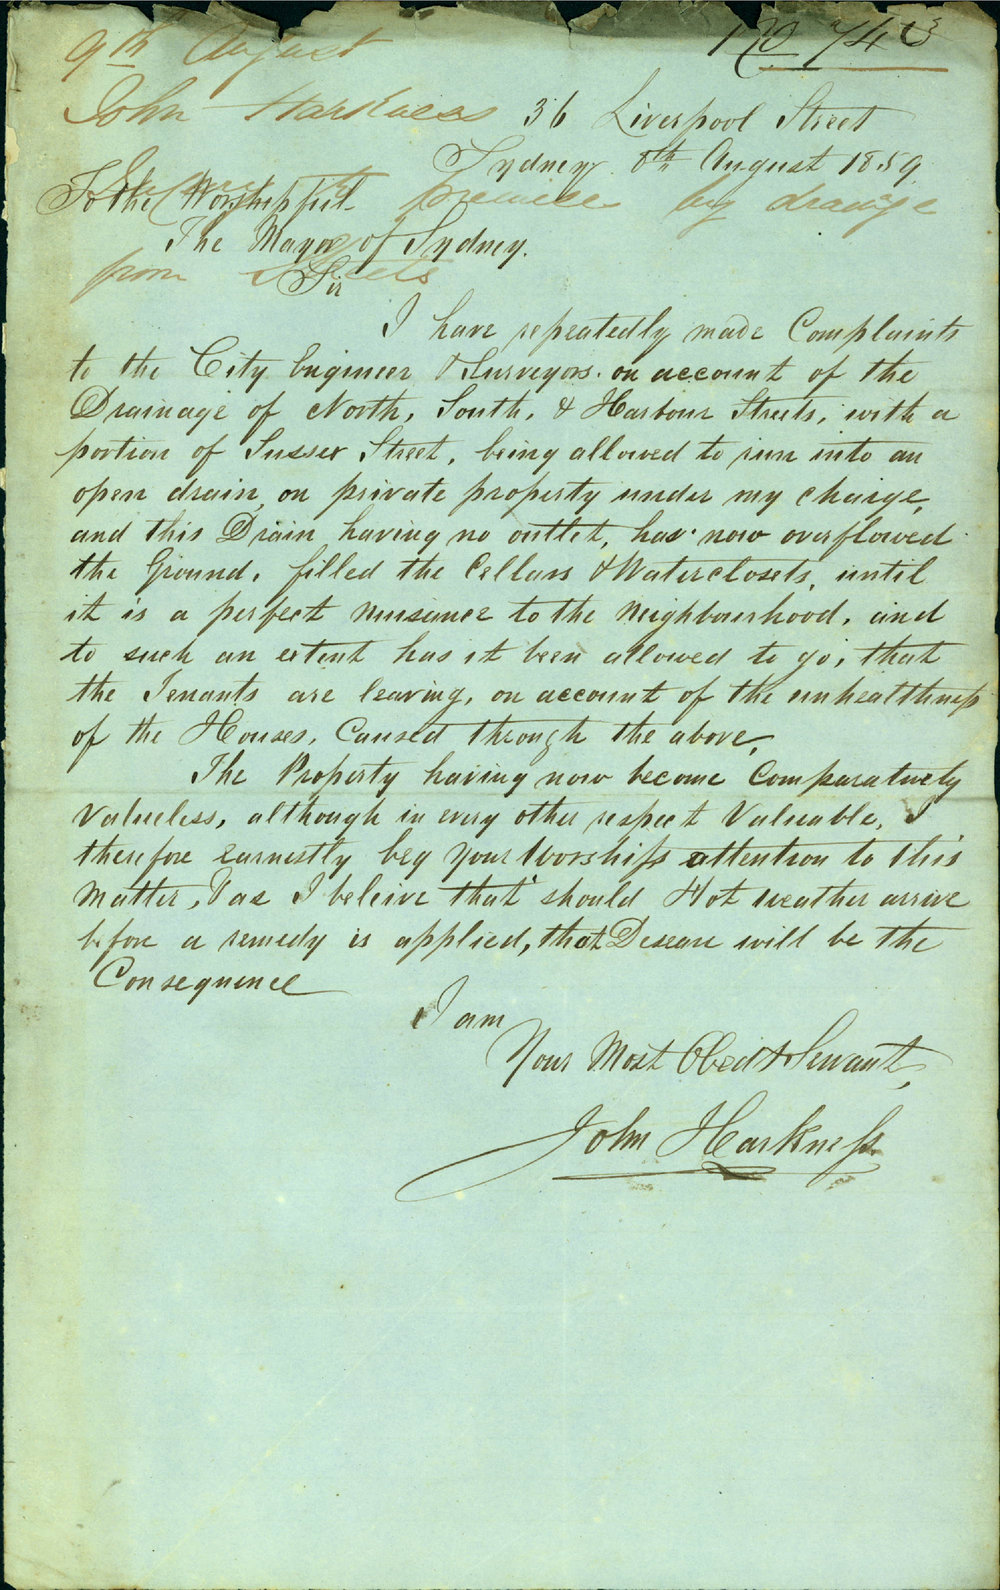 9th August
No 743
John Harkness
36 Liverpool Street
Sydney 8th August 1859
To the Worshipful
premises by drainage
The Mayor of Sydney.
from Streets
Sir
I have repeatedly made Complaints
to the City Engineer & Surveyors. on account of the
Drainage of North, South, & Harbour Streets, with a
portion of Sussex Street, being allowed to run into an
open drain, on private property under my charge,
and this Drain having no outlet, has now overflowed
the Ground, filled the Cellars & Waterclosets, until
it is a perfect nuisance to the Neighbourhood, and
to such an extent has it been allowed to go, that
the Tenants are leaving, on account of the unhealthiness
of the Houses, Caused through the above,
The Property having now become Comparatively
Valueless, although in every other respect Valuable, I
therefore earnestly beg your Worships attention to this
Matter, & as I beleive that should Hot weather arrive
before a remedy is applied, that Desease will be the
Consequence
I am
Your Most Obedt Servant,
John Harkness